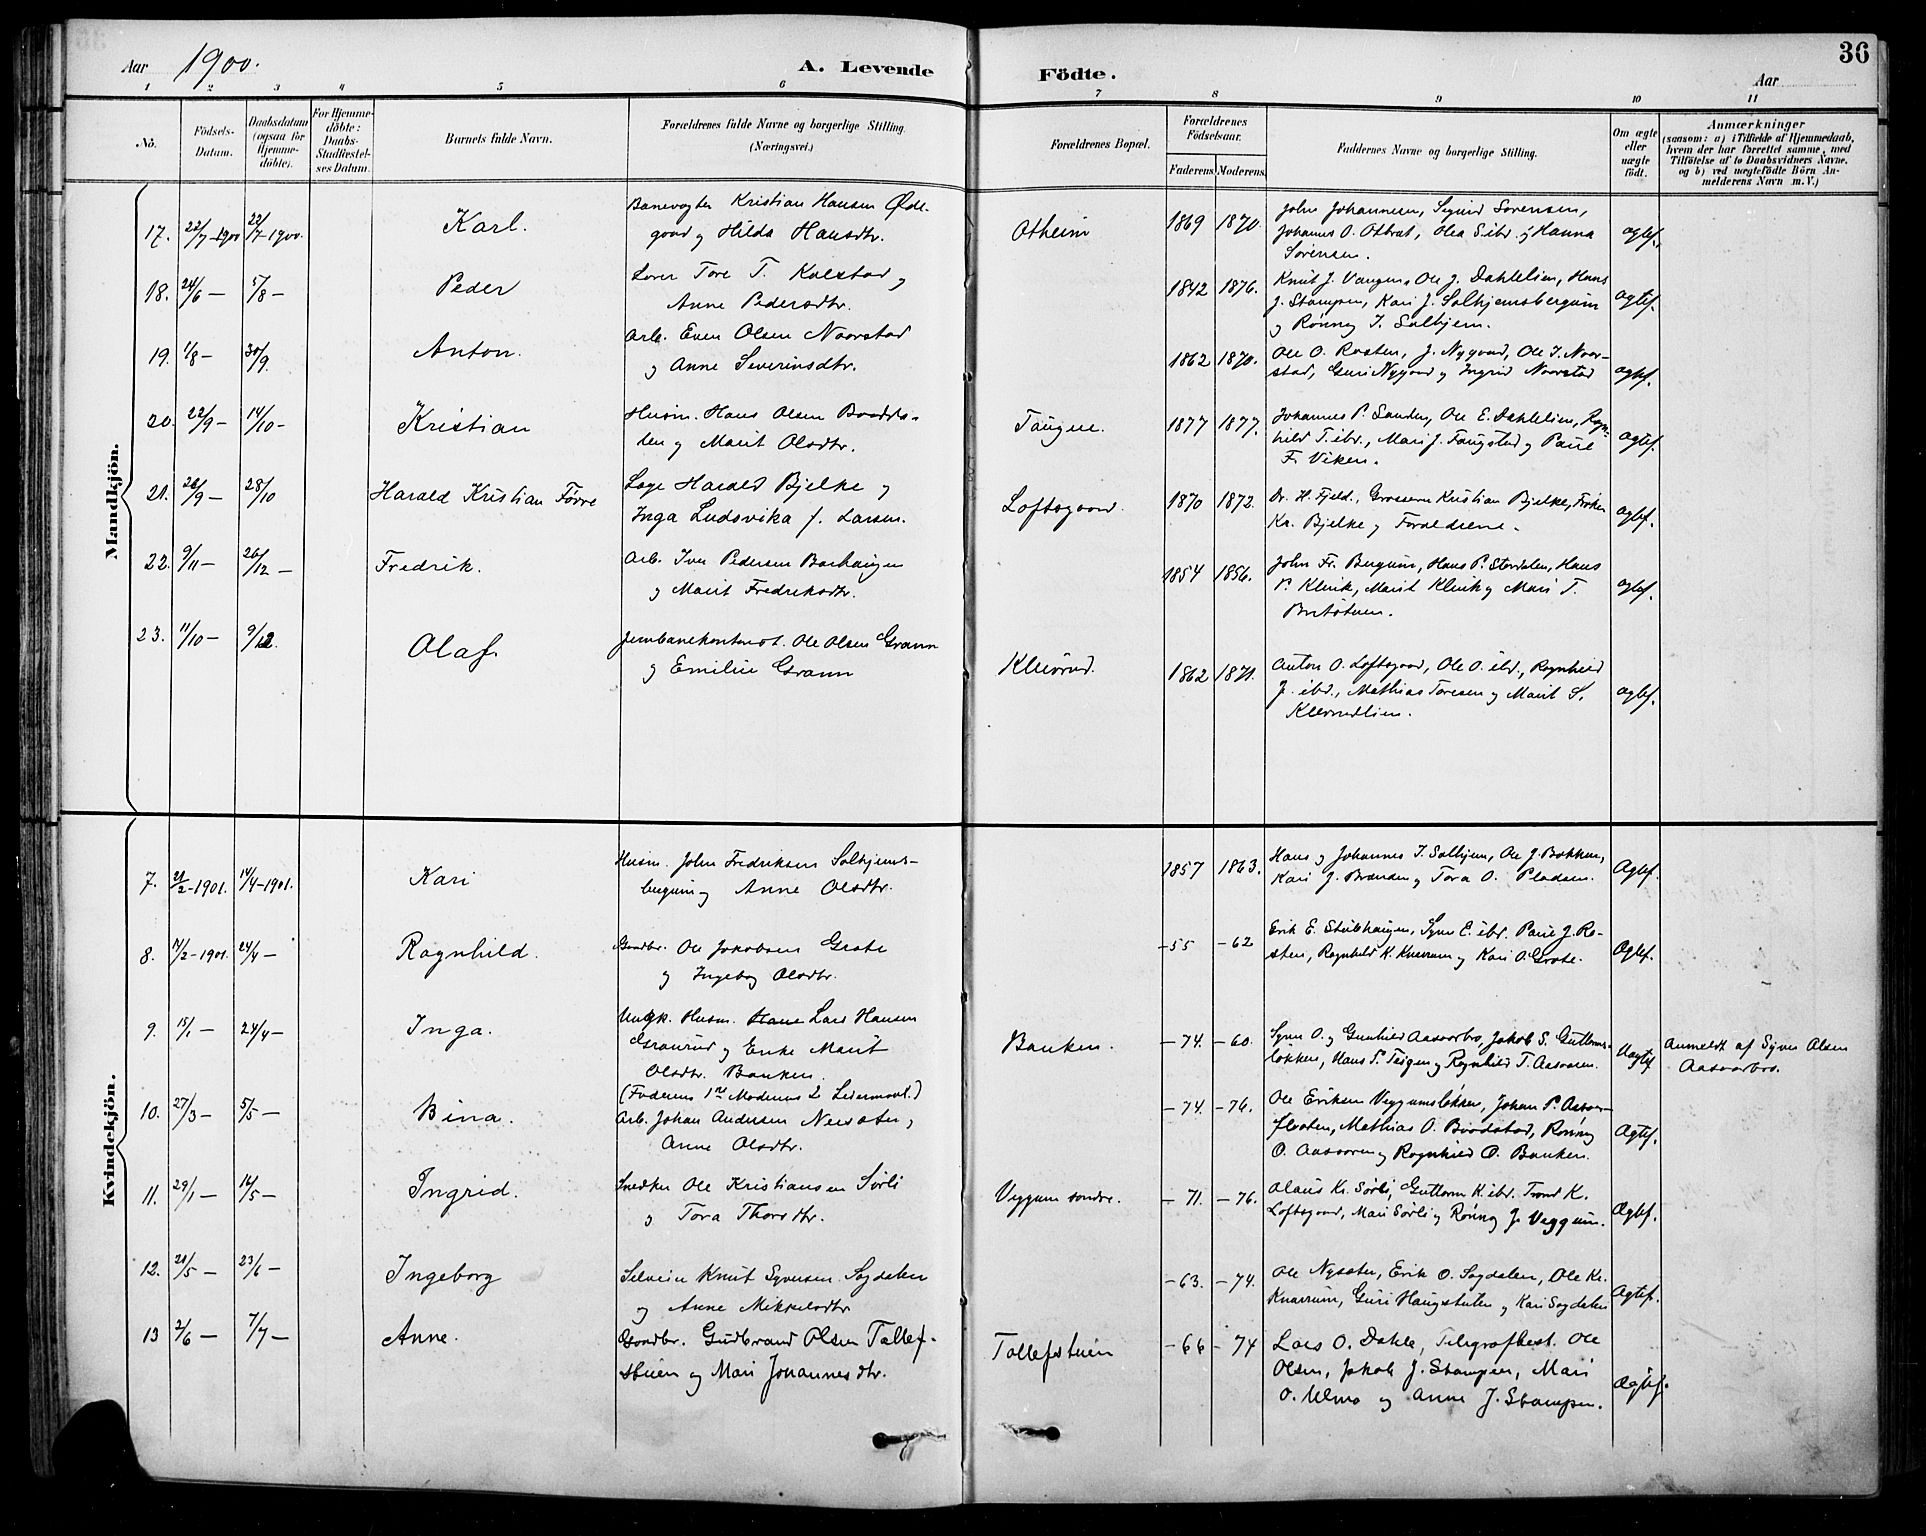 Aar 1900.
A. Levende
Födte.
36
Aar
1 2 3 4 5 6 7 8 9 10 11
No.
Födsels-
Datum.
Daabsdatum
(ogsaa for
Hjemme-
döbte).
For Hjemme-
döbte:
Daabs-
Stadfæstel-
ses Datum.
Barnets fulde Navn.
Forældrenes fulde Navne og borgerlige Stilling.
(Næringsvei.)
Forældrenes Bopæl.
Forældrenes
Födselsaar.
Faderens. Moderens.
Faddernes Navne og borgerlige Stilling.
Om ægte
eller
uægte
født.
Anmærkninger
(saasom: a) i Tilfælde af Hjemmedaab,
hvem der har forrettet samme, med
Tilföielse af to Daabsvidners Navne,
og b) ved uægtefödte Börn An-
melderens Navn m. V.)
Mandkjön.
17. 22/7-1900. Karl. Banevogter Kristian Hansen Øde-
gaard og Hilda Hansdtr.
1869 1870. John Johannesen, Sigrid Sørensen,
Johannes O. Otbrat, Olea S. ibd. og Hanna
Sørensen.
ægtef.
18. 24/6 — 5/8 — Peder Tore T. Kolstad og
Anne Pedersdtr.
1842 1876. Knut J. Vangen, Ole J. Dahlelien, Hans
J. Stampen, Kari J. Solhjemsbergum
og Rønnog J. Solhjem.
ægtef.
19. 1/8 — 30/9. Anton. Arb. Even Olsen Norstad
og Anne Severinsdtr.
1862 1870. Ole O. Rosten, J. Nygaard, Ole I. Nor-
stad, Guri Nygaard og Ingrid Norstad
ægtef.
20. 22/9 — 14/10 — Kristian Husm. Hans Olsen
og Marit Olsdtr.
Taugne.
1877 1877. Johannes P. Sanden, Ole E. Dahlelien, Ragn-
hild T. ibd., Mari J. Faugstad og Paul
F. Viken.
ægtef.
21. 26/9 — 28/10 Harald Kristian Förre Harald Bjelke og
Inga Ludovika f. Larsen.
Loftsgaard.
1870 1872. Dr. H. Fjeld, Grosserer Kristian Bjelke, Frøken
Kr. Bjelke og Forældrene.
ægtef.
22. 9/11 — 26/12 — Fredrik. Arb. Iver Pedersen Barhaugen
og Marit Fredriksdtr.
1854 1856. John Fr. Bergum, Hans P. Stordalen, Hans
P. Klevik, Marit Klevik og Mari T.
ægtef.
23. 11/10 — 9/12. Olaf. Jernbanekontorist. Ole Olsen Grann
og Emilie Grann
Kleivrud.
1862 1871. Anton O. Loftsgaard, Ole O. ibd., Ragnhild
J. ibd., Mathias Toresen og Marit S.
Kleivrudlien.
ægtef.
Kvindekjön.
7. 21/2-1901. 14/4-1901. Kari Husm. John Fredriksen Solhjems-
bergum og Anne Olsdtr.
1857 1863. Hans og Johannes J. Solhjem, Ole J. Bakken,
Kari J. Brænden og Tora O. Pladsen.
Ægtef.
8. 17/2-1901. 24/4 — Ragnhild. Gaardbr. Ole Jakobsen Grote
og Ingeborg Olsdtr.
— 55 — 62 Erik E. Stulehaugen, Syver E. ibd. Paul J. Ro-
sten, Ragnhild K. Knarrum og Kari O. Grote.
Ægtef.
9. 15/1 — 24/4 — Inga. Ungk. Husm. Lars Hansen
og Enke Marit
Olsdtr. Banken.
(Faderens 1ste Moderens 2 Leiermaal.)
Banken.
— 74. — 60. Syver O. og Gunhild Aasaarbro, Jakob S. Guttorms-
løkken, Hans P. Teigen og Ragnhild T. Aasaaren.
Uægtef
Anmeldt af Syver Olsen
Aasaarbro.
10. 27/3 — 5/5 — Bina. Arb. Johan Andersen og
Anne Olsdtr.
— 74. — 76. Ole Eriksen Veggumsløkken, Johan P. Aasaar-
flaaten, Mathias O. Bredstad, Rønnog
O. Aasaaren og Ragnhild O. Banken.
Ægtef.
11. 29/1 — 16/5 — Ingrid. Snedker Ole Kristiansen Sørli
og Tora Thorsdtr.
Veggum søndre.
— 71. — 76. Olaus Kr. Sørli, Guttorm K. ibd. Trond K.
Loftsgaard, Mari Sørli og Rønnog J. Veggum.
Ægtef.
12. 20/5 — 23/6 — Ingeborg Selveier Knut Syversen Sagdalen
og Anne Mikkelsdtr
— 63. — 74. Ole Nysæter, Erik O. Sagdalen, Ole Kr.
Knarrum, Guri Haugstulen og Kari Sagdalen
Ægtef.
13 2/6 — 7/7 — Anne. Gaardbr. Gudbrand Olsen Tollef-
stuen og Mari Johannesdtr.
Tollefstuen
— 66 — 74 Lars O. Dahle, Telegrafbest. Ole
Olsen, Jakob J. Stampen, Mari
O. Ulmo og Anne J. Stampen.
Ægtef.